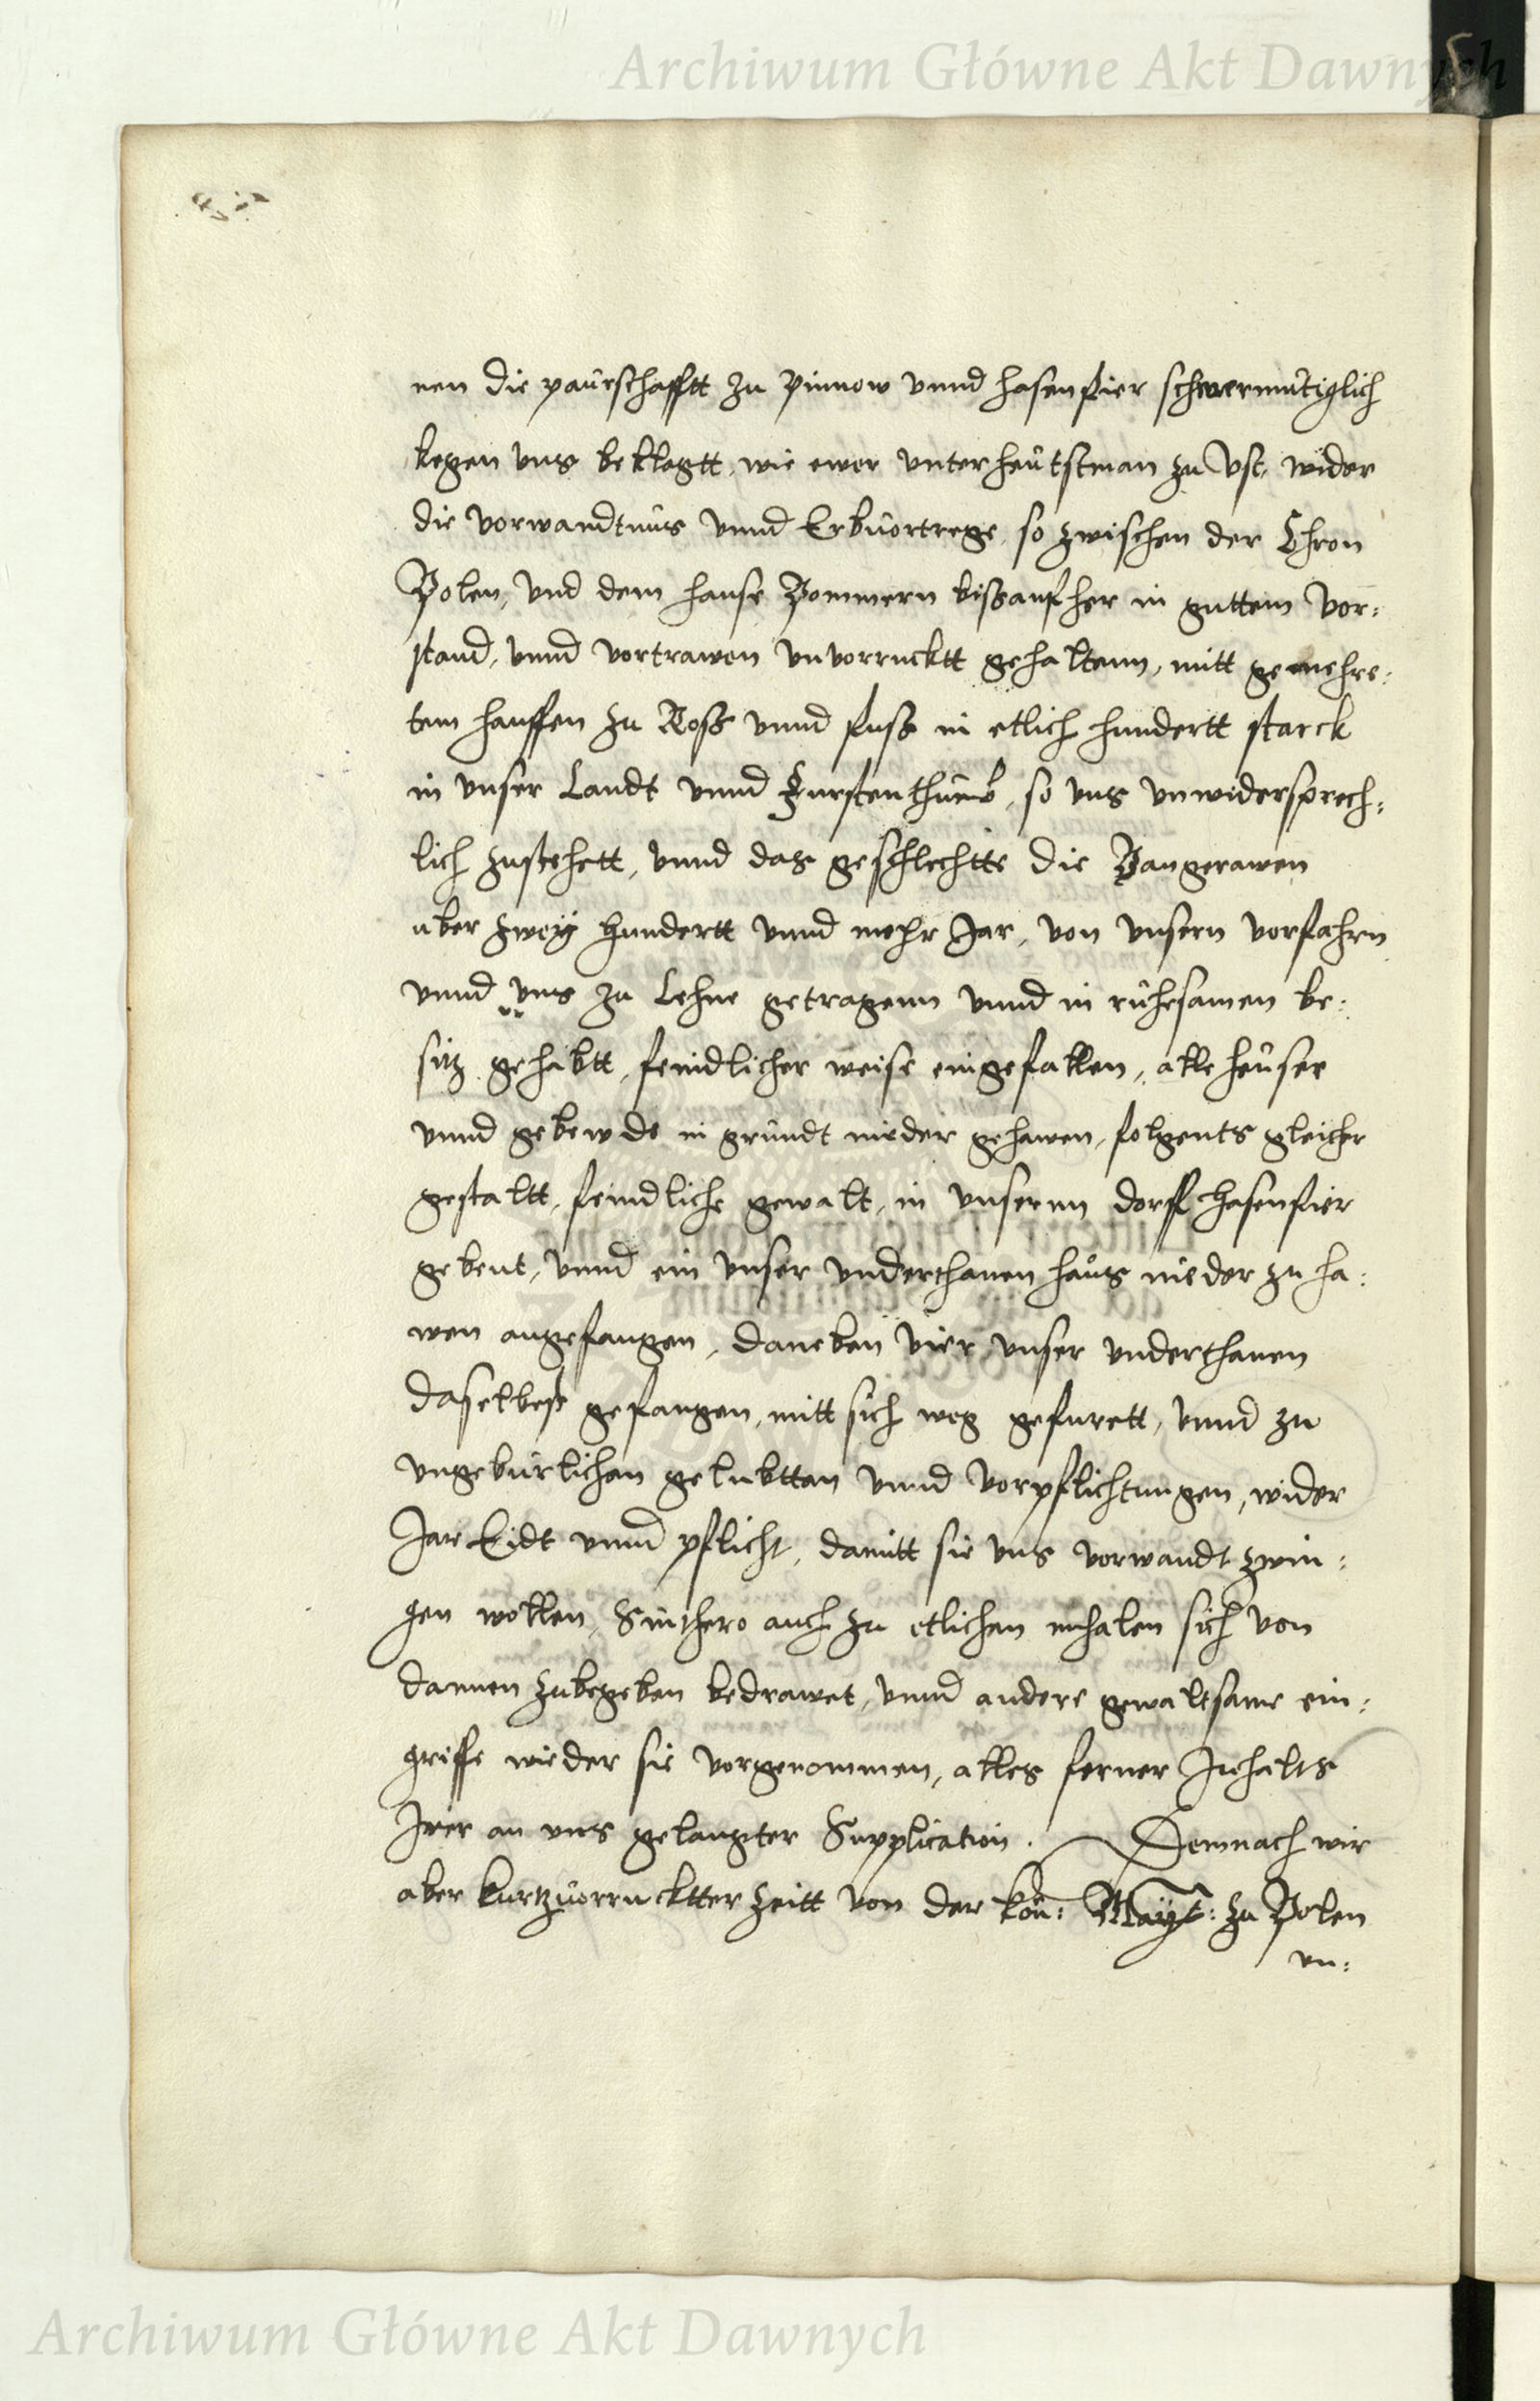 Archiwum Główne Akt Dawnych
nen die paurschafftt zu Pinnow vnnd hasenfier schwermutiglich
kegen vns beklagtt, wie ewer vnterheutstman zu Vst, wider
die vorwandtnus vnnd Erbuortrege, so zwischen der Chron
Polen, vnd dem hause Pommern bissanfher in guttem vor:
stand, vnnd vortrawen vnvorrucktt gehaltenn, mitt gemehre:
tem hauffen zu Ross vnnd fuss in etlich hundertt starck
in vnser Landt vnnd Furstenthumb, so vns vnwidersprech:
lich zustehett, vnnd das geschlechtte die Zangerawen
uber zweÿ hundertt vnnd mehr Jar, von vnsern vorfahrn
vnnd vns zu Lehne getragenn vnnd in ruhesamen be:
sitz gehabtt, feindlicher weise eingefallen, alle heuser
vnnd gebewde in grundt nieder gehawen, folgents gleicher
gestaltt, feindliche gewalt, in vnserm dorff hasenfier
geubt, vnnd ein vnser vnderthanen haus nieder zu ha:
wen angefangen, daneben vier vnser vnderthanen
daselbest gefangen, mitt sich weg gefurett, vnnd zu
vngeburlichen gelubtten vnnd vorpflichtungen, wider
Jre Eidt vnnd pflicht, damitt sie vns vorwandt zwin:
gen wollen, Sinthero auch zu etlichen mhalen sich von
dannen zubegeben bedrawet, vnnd andere gewaltsame ein:
griffe wieder sie vorgenommen, alles ferner Inhalts
Irer an vns gelangter Supplication. Demnach wir
aber kurtzuorrucktter Zeitt von der kön: Maÿt: zu Polen
vn:
Archiwum Główne Akt Dawnych